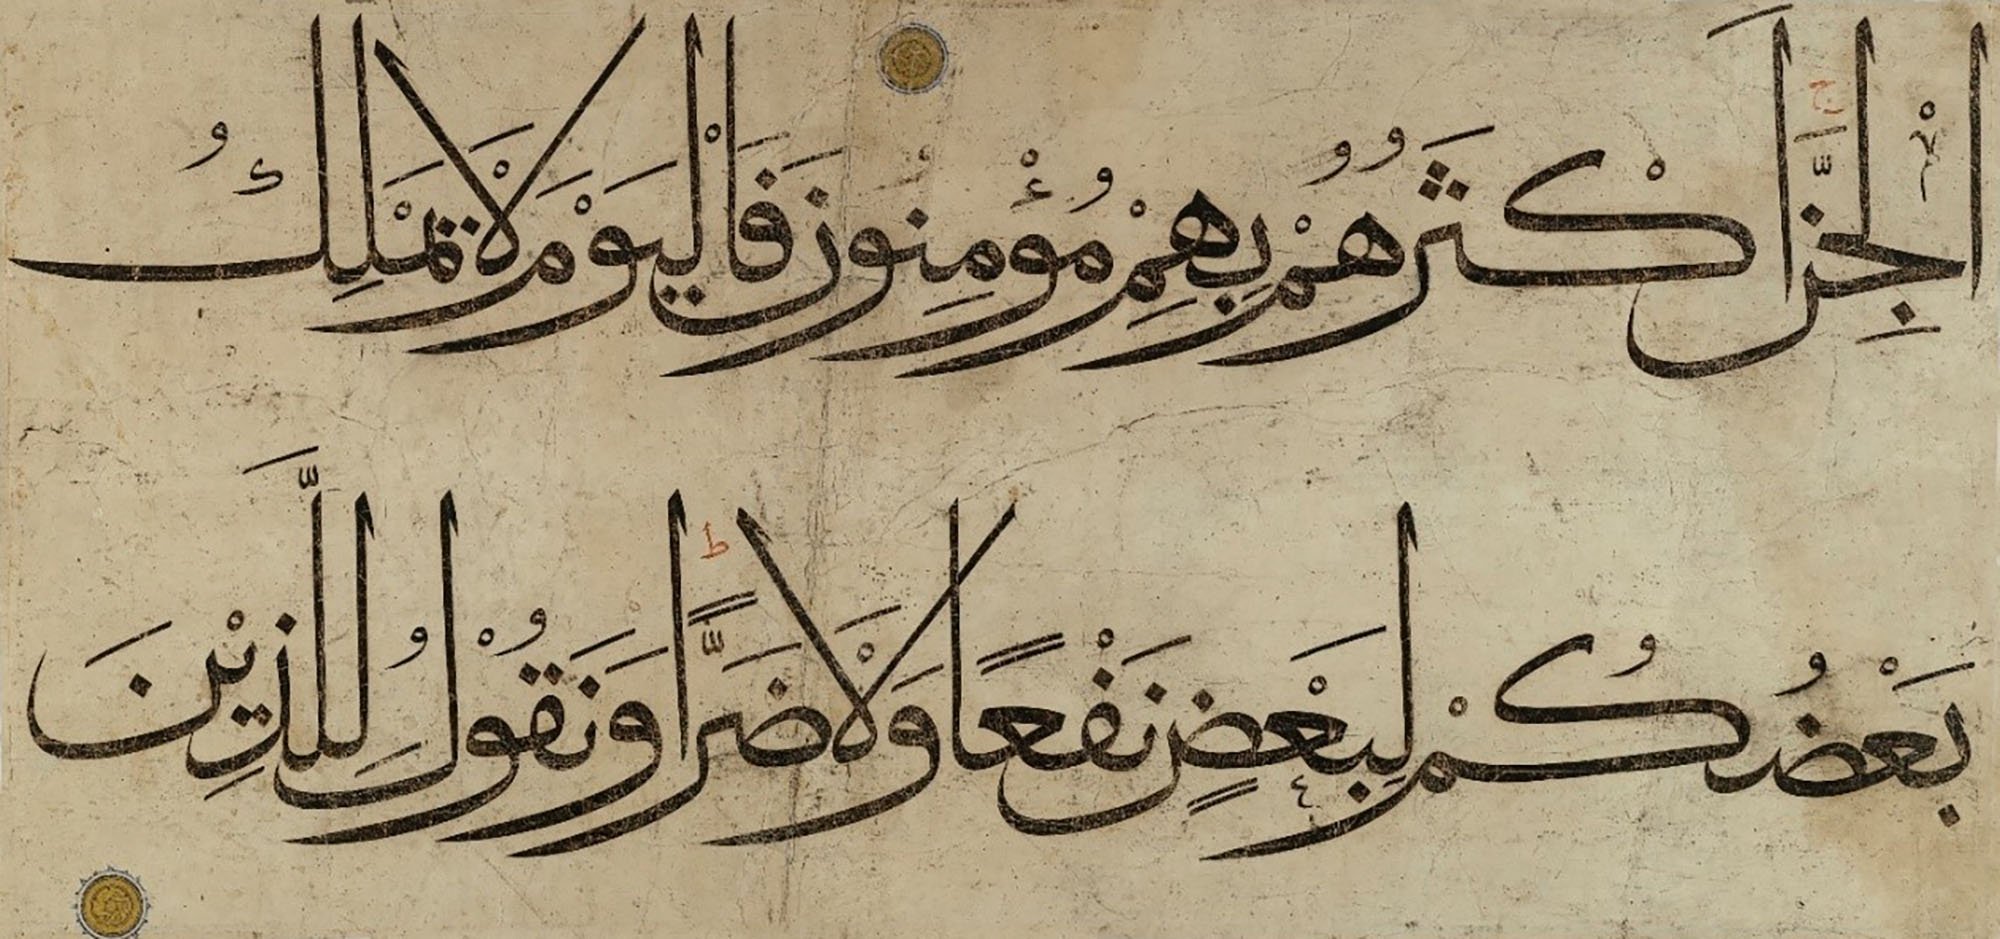 الْجِنَّ ۚ اَكْثَرُهُمْ بِهِمْ مُؤْمِنُونَ فَالْيَوْمَ لَا يَمْلِكُ
بَعْضُكُمْ لِبَعْضٍ نَفْعًا وَلَا ضَرًّا ۗ وَنَقُولُ لِلَّذِينَ